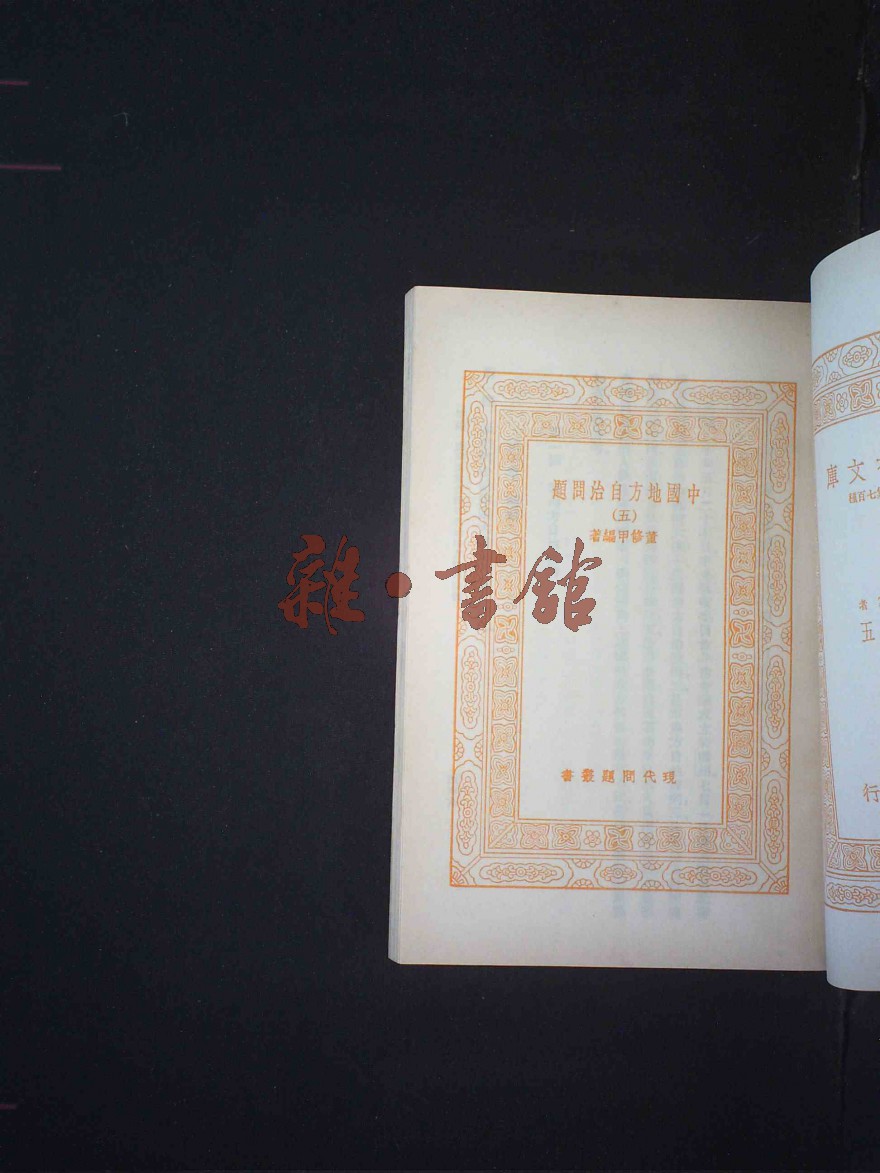 中國地方自治問題
(五)
董修甲編著
現代問題叢書
雜·書館
文庫
七百種
五
行